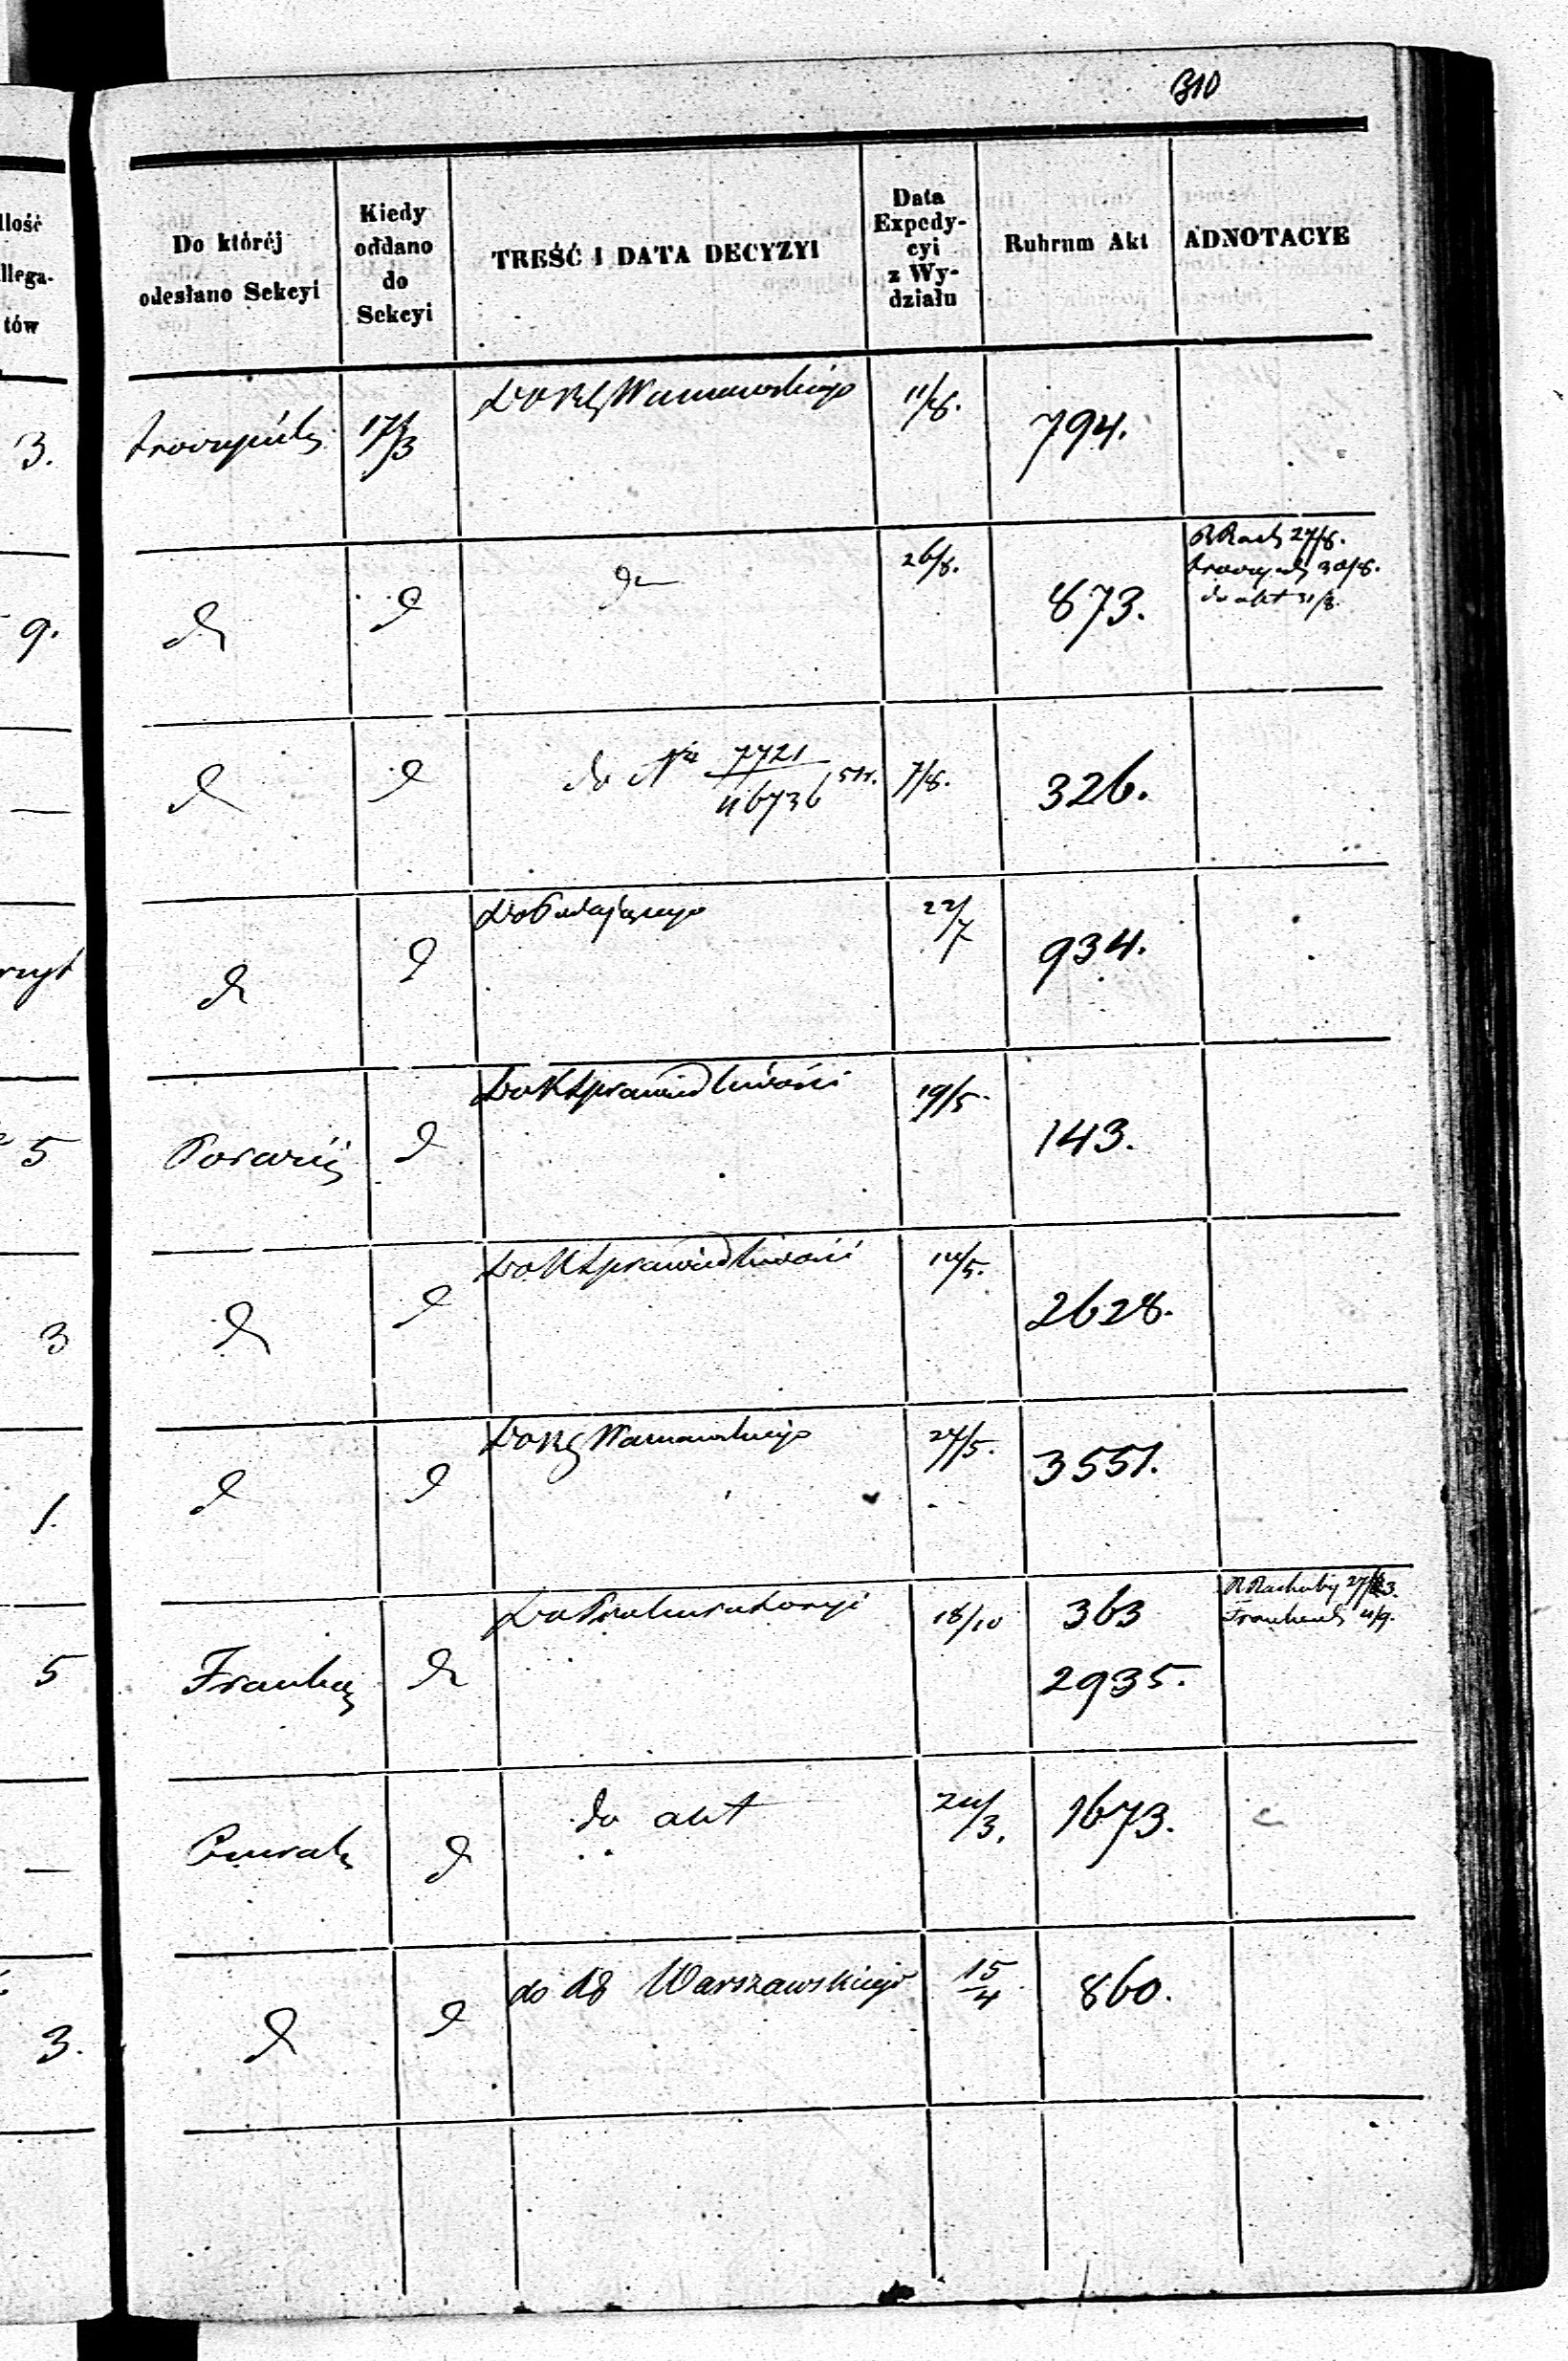 310
llość
llega-
tów
Do któréj
odesłano Sekcyi
Kiedy
oddano
do
Sekcyi
TREŚĆ I DATA DECYZYI
Data
Expedy-
cyi
z Wy-
działu
Rubrum Akt
ADNOTACYE
3.
17/3
Do RG Warszawskiego
11/8.
794.
9.
d
d
do
26/8.
873.
27/8.
30/8.
do akt 31/8.
—
d
d
do Nr 7721
46736 / 51r.
7/8.
326.
d
d
Do Podającego
22/7
934.
5
d
Do K Sprawiedliwości
19/5.
143.
3
d
d
Do K Sprawiedliwości
14/5.
2628.
1.
d
d
Do RG Warszawskiego
24/5.
3551.
5
d
Do Prokuratoryi
18/10
363
2935.
4/9.
—
d
do akt
24/3.
1673.
3.
d
d
do RG Warszawskiego
15/4
860.